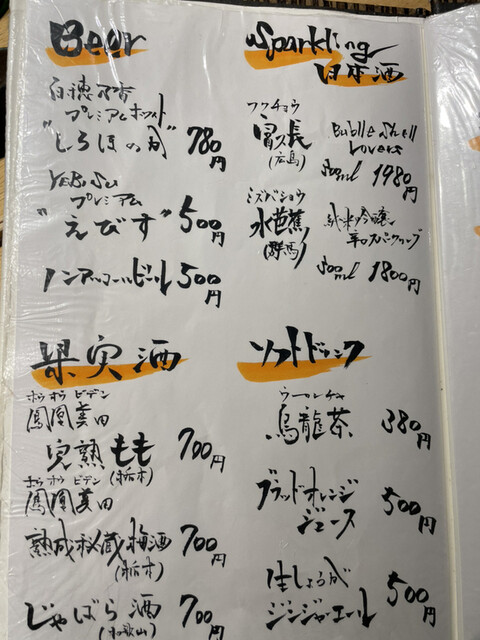 Beer
白穂乃香
プレミアム
"しろほのか" 780円
YEBISU
プレミアム
"えびす" 500円
ノンアルコールビール 500円
Sparkling
日本酒
フクチョウ
富久長
(広島)
Bubble Shell
Lovers
500ml 1980円
ミズバショウ
水芭蕉
(群馬)
純米吟醸
辛口スパークリング
500ml 1800円
果実酒
ホウ オウ ビデン
鳳凰美田
完熟もも 700円
(栃木)
ホウ オウ ビデン
鳳凰美田
熟成秘蔵梅酒 700円
(栃木)
じゃばら酒 700円
(和歌山)
ソフトドリンク
ウーロンチャ
烏龍茶 380円
ブラッドオレンジ
ジュース 500円
生しょうが
ジンジャーエール 500円